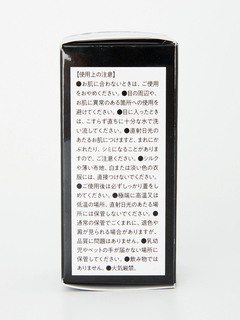 【使用上の注意】
●お肌に合わないときは、ご使用
をおやめください。●目の周辺や、
お肌に異常のある箇所への使用を
避けてください。●目に入ったとき
は、こすらず直ちに十分な水で洗
い流してください。●直射日光の
あたるお肌につけますと、まれにか
ぶれたり、シミになることがありま
すので、ご注意ください。●シルク
や薄い毛布、白または淡い色の衣
服には、直接つけないでください。
●ご使用後は必ずしっかり蓋をし
めてください。●極端に高温又は
低温の場所、直射日光のあたる場
所には保管しないでください。●
通常の保管でごくまれに、退色や
濁が見られる場合がありますが、
品質に問題はありません。●乳幼
児やペットの手が届かない場所に
保管してください。●飲み物では
ありません。●火気厳禁。